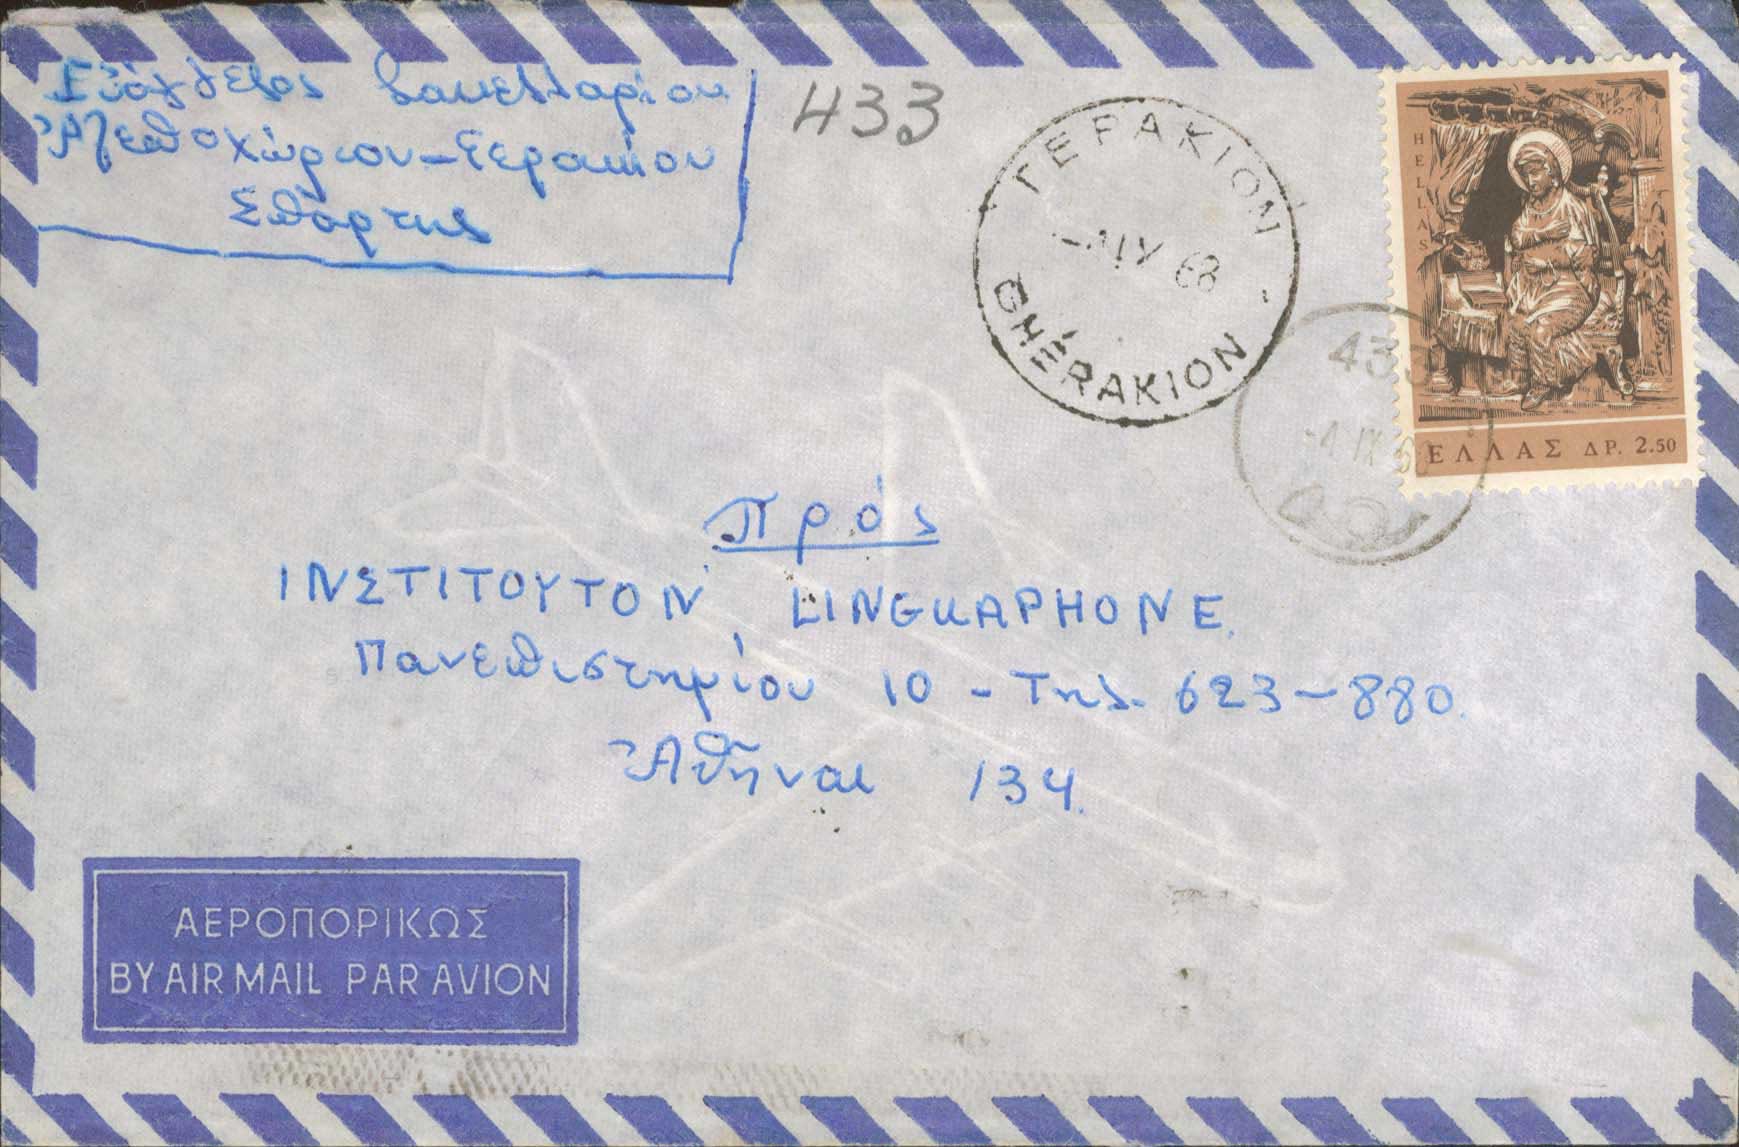 Εὐάγγελος Σακελλαρίου
Ἀλεποχώριον - Γερακίου
Σπάρτης
433
ΓΕΡΑΚΙΟΝ
IX 68
GHÉRAKION
HELLAS
ΕΛΛΑΣ ΔΡ. 2.50
433
-4 IX 68
Πρός
ΙΝΣΤΙΤΟΥΤΟΝ LINGUAPHONE
Πανεπιστημίου 10 - Τηλ. 623-880.
Ἀθῆναι 134.
ΑΕΡΟΠΟΡΙΚΩΣ
BY AIR MAIL PAR AVION